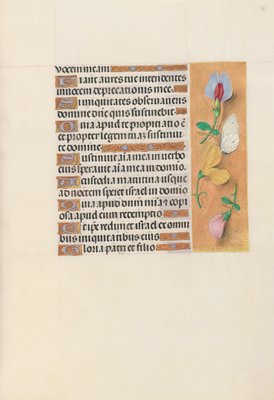 vocem meam
Fiant aures tue intendentes
in vocem deprecationis mee
Si iniquitates observaveris
domine dñe quis sustinebit
Quia apud te propitiatio ē
et propter legem tuā sustinui
te domine
Sustinuit aīa mea in verbo
eius speravit aīa mea in domīo
A custodia matutina usque
ad noctem speret israel in domīo
Quia apud dnm mīa et copi
osa apud eum redemptio
Et ipse redimet israel ex omni
bus iniquitatibus eius
Gloria patri et filio